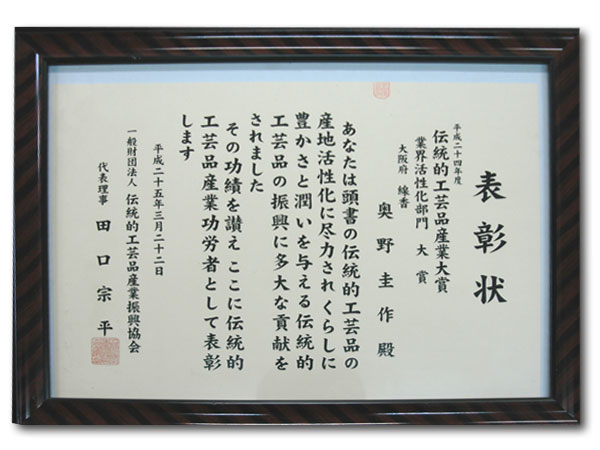 表彰状
平成二十四年度
伝統的工芸品産業大賞
業界活性化部門 大賞
大阪府 線香
奥野圭作殿
あなたは頭書の伝統的工芸品の
産地活性化に尽力され くらしに
豊かさと潤いを与える伝統的
工芸品の振興に多大な貢献を
されました
その功績を讃え ここに伝統的
工芸品産業功労者として表彰
します
平成二十五年三月二十二日
一般財団法人 伝統的工芸品産業振興協会
代表理事 田口宗平